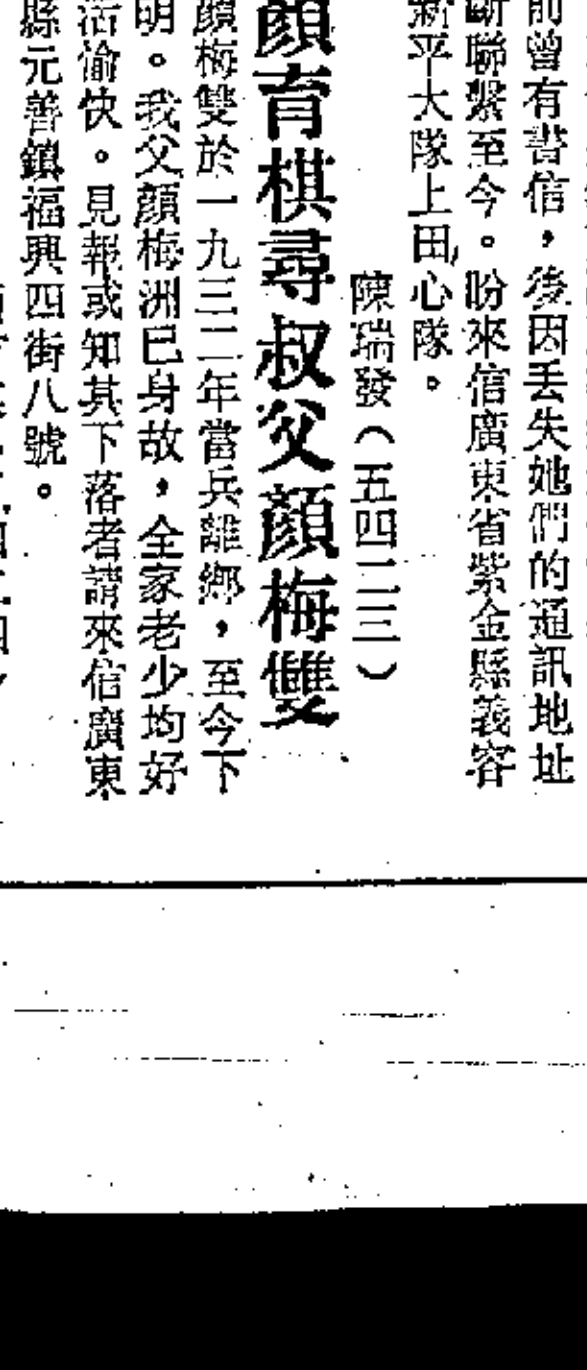 前曾有書信，後因丟失她們的通訊地址
斷聯繫至今。盼來信廣東省紫金縣義容
新平大隊上田心隊。
陳瑞發（五四二三）
顏育棋尋叔父顏梅雙
顏梅雙於一九三二年當兵離鄉，至今下
明。我父顏梅洲已身故，全家老少均好
活愉快。見報或知其下落者請來信廣東
縣元善鎮福興四街八號。